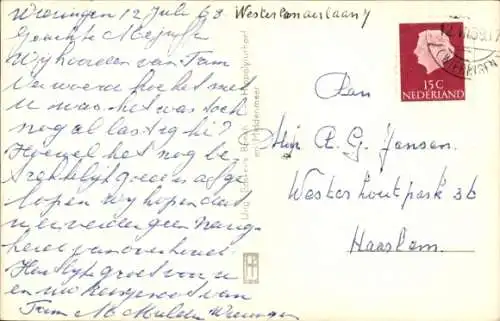 Wieringen 12 Juli 63 Westerlanderlaan 7
Geachte Mejufr
Wij hoorden van Fam
Verwoerd hoe het met
u was. het was toch
nog al lastig hè?
Hoewel het nog be-
trekkelijk goed is afge
lopen. Wij hopen dat
u er verder geen
van overhoud.
Hartelijk groet van u
en uw van
Fam M. Mulder Wieringen
15 C
NEDERLAND
WIERINGEN
Aan
Mejn A. G. Jansen.
Westerhoutpark 36
Haarlem.